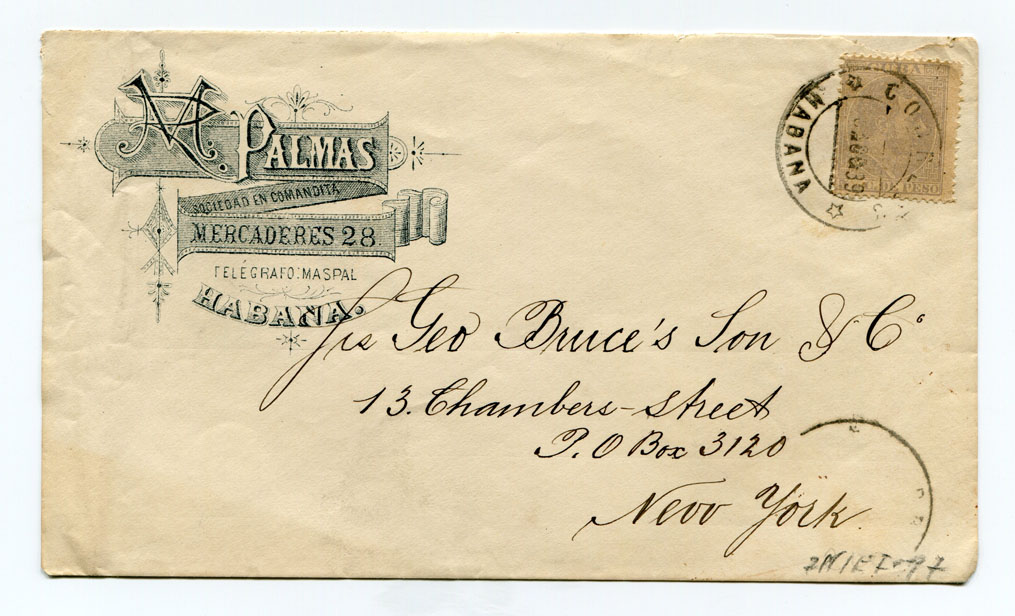 M. PALMAS
SOCIEDAD EN COMANDITA
MERCADERES 28.
TELÉGRAFO: MASPAL
HABANA.
HABANA
DE PESO
Geo Bruce's Son & Co
13. Chambers-street
P.O Box 3120
New York